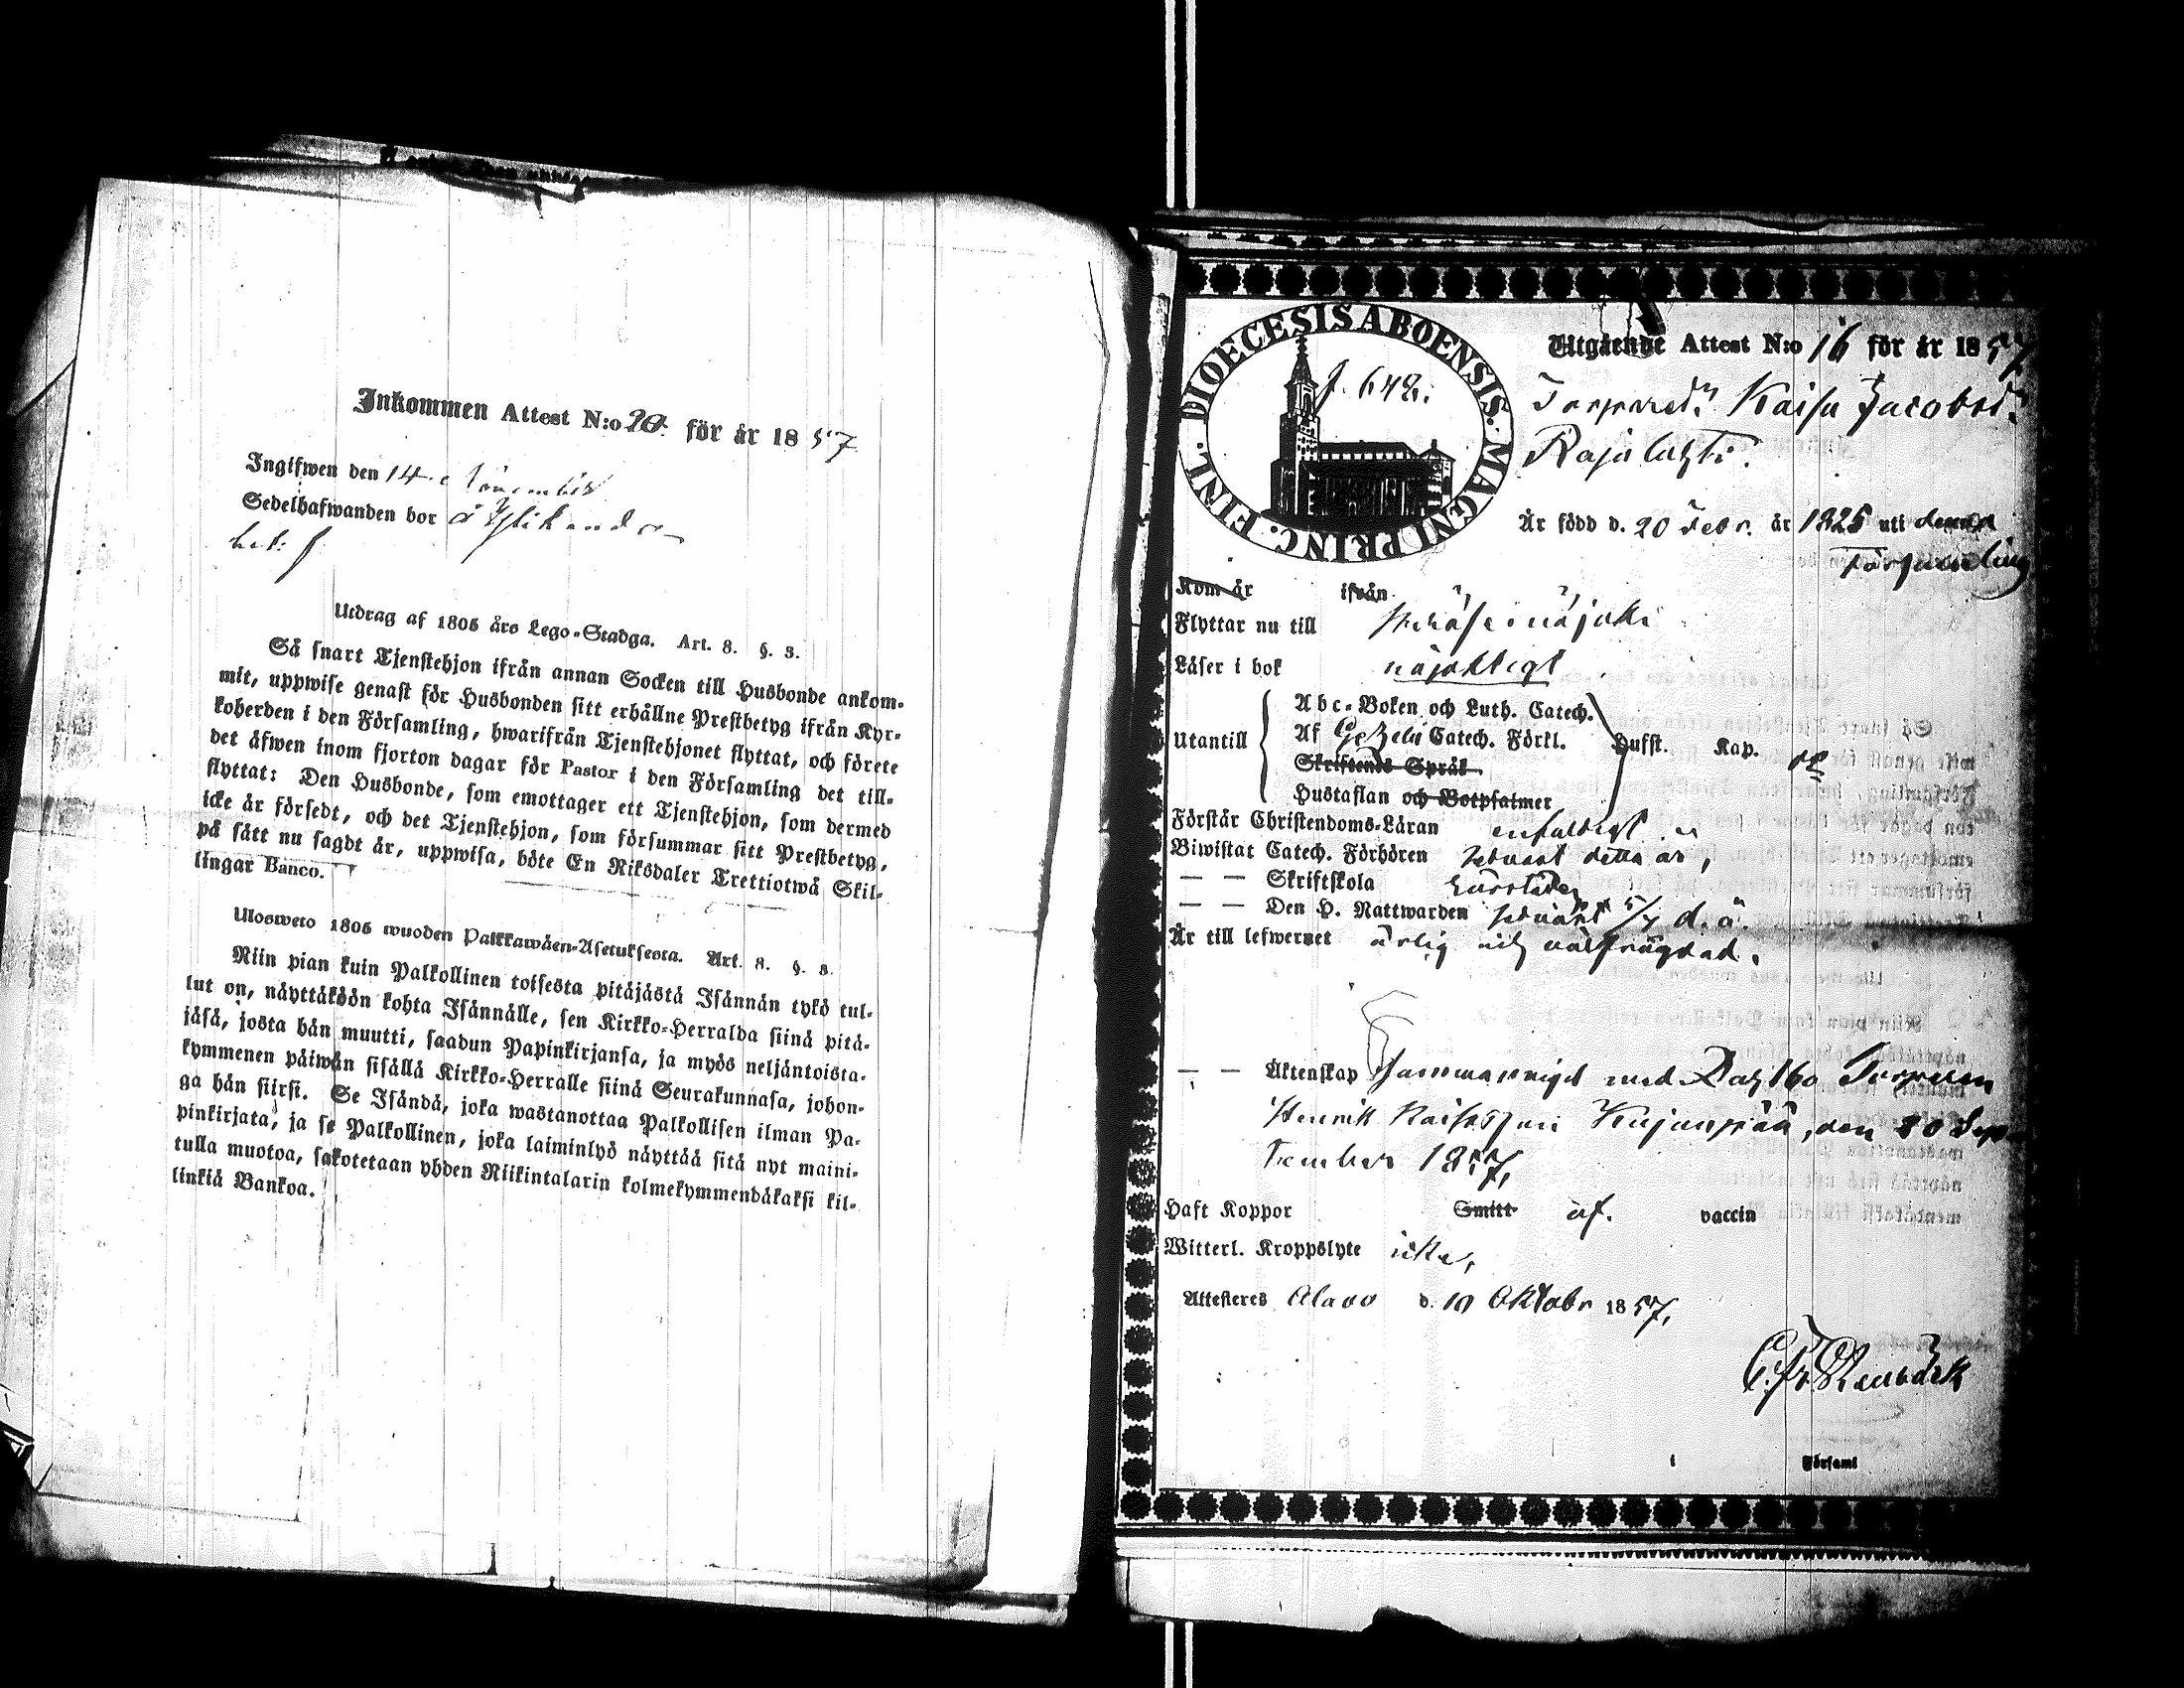 Inkommen Attest N:o 20. för år 1857
Ingifwen den 14. November
Sedelhafwanden bor å Ylikand
Utdrag af 1805 års Lego-Stadga. Art. 8. §. 3.
Så snart Tjenstehjon ifrån annan Socken till Husbonde ankom-
mit, uppwise genast för Husbonden sitt erhållne Prestbetyg ifrån Kyr-
koherden i den Församling, hwarifrån Tjenstehjonet flyttat, och förete
det äfwen inom fjorton dagar för Pastor i den Församling det till-
flyttat: Den Husbonde, som emottager ett Tjenstehjon, som dermed
icke är försedt, och det Tjenstehjon, som försummar sitt Prestbetyg,
på sätt nu sagdt är, uppwisa, böte En Riksdaler Trettiotwå Skil-
lingar Banco.
Ulosweto 1805 wuoden Palkkawäen-Asetuksesta. Art. 8. §. 3.
Niin pian kuin Palkollinen toisesta pitäjästä Isännän tykö tul-
lut on, näyttäköön kohta Isännälle, sen Kirkko-Herralda siinä pitä-
jäsä, josta hän muutti, saadun Papinkirjansa, ja myös neljäntoista-
kymmenen päiwän sisällä Kirkko-Herralle siinä Seurakunnasa, johon-
ga hän siirsi. Se Isändä, joka wastanottaa Palkollisen ilman Pa-
pinkirjata, ja se Palkollinen, joka laiminlyö näyttää sitä nyt maini-
tulla muotoa, sakotetaan yhden Riikintalarin kolmekymmendäkaksi kil-
linkiä Bankoa.
DIOECESIS ABOENSIS. MAGNI PRINC. FINL.
f. 648.
Utgående Attest N:o 16 för år 1857
Torpared. Kaisa Jacobsd.
Rajalahti.
Är född d. 20 Febr. år 1825 uti denna
Församling
Kom år ifrån
Flyttar nu till
Läser i bok nöjaktigt
Abc-Boken och Luth. Catech.
Utantill Af Gezelii Catech. Förkl. Hufst. Kap.
Skriftenes Språk
Hustaflan och Botpsalmer
Förstår Christendoms-Läran enfaldigt
Biwistat Catech. Förhören sednast detta år,
— — Skriftskola
— — Den H. Nattwarden sednast 5/7 d. å.
Är till lefwernet ärlig och välfrägdad.
— — Äktenskap Sammanvigd med Torparen
Henrik Kujanpää, den 20 Sep-
tember 1857,
Haft Koppor Smitt af. vaccin
Witterl. Kroppslyte icke,
Attesteres Alavo d. 10 Oktobr 1857,
C. Fr. Stenbäck
i Församl